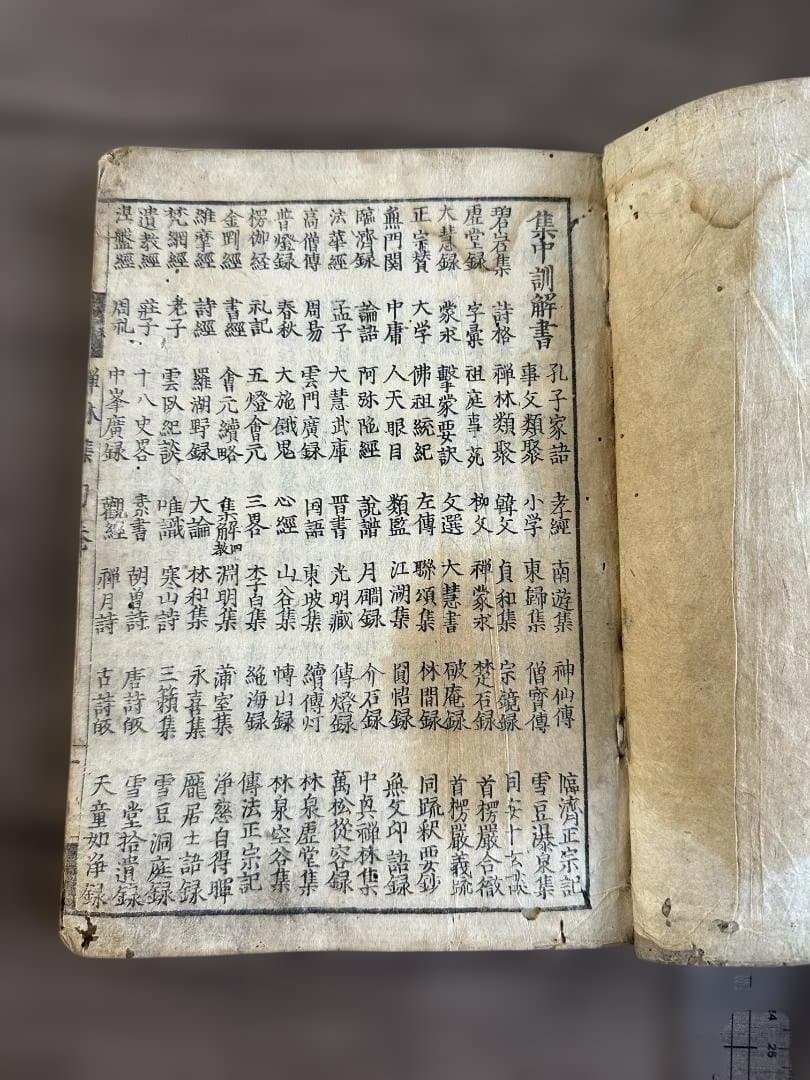 集中訓解書
孔子家語 孝經 南遊集 神仙傳 臨濟正宗記
事文類聚 小学 東歸集 僧寳傳 雪豆瀑泉集
碧岩集 詩格 禅林類聚 韓文 貞和集 宗鏡録 同安十玄談
虚堂録 字彙 祖庭事苑 柳文 禅蒙求 楚石録 首楞嚴合徹
大慧録 蒙求 擊蒙要訳 文選 大慧書 破庵録 首楞嚴義疏
正宗賛 大学 佛祖統紀 左傳 聯頌集 林間録 同疏釈要鈔
無門関 中庸 人天眼目 類監 江湖集 圓悟録 無文印語録
臨濟録 論語 阿弥陁經 說譜 月磵録 介石録 中眞禅林集
法華經 孟子 大慧武庫 晋書 光明藏 傳燈録 萬松從容録
高僧傳 周易 雲門廣録 国語 東坡集 續傳灯 林泉虚堂集
普燈録 春秋 大施餓鬼 心經 山谷集 慱山録 林泉空谷集
楞伽経 礼記 五燈會元 三畧 李白集 絶海録 傳法正宗記
金剛經 書經 會元續略 集解四教 淵明集 蒲室集 浄慈自得暉
維摩經 詩經 羅湖野録 大論 林和集 永喜集 龐居士語録
梵網經 老子 雲臥紀談 唯識 寒山詩 三籟集 雪豆洞庭録
遺教經 莊子 十八史畧 素書 胡曽詩 唐詩皈 雪堂拾遺録
涅盤經 周礼 中峯廣録 觀經 禅月詩 古詩皈 天童如浄録
禅林集句